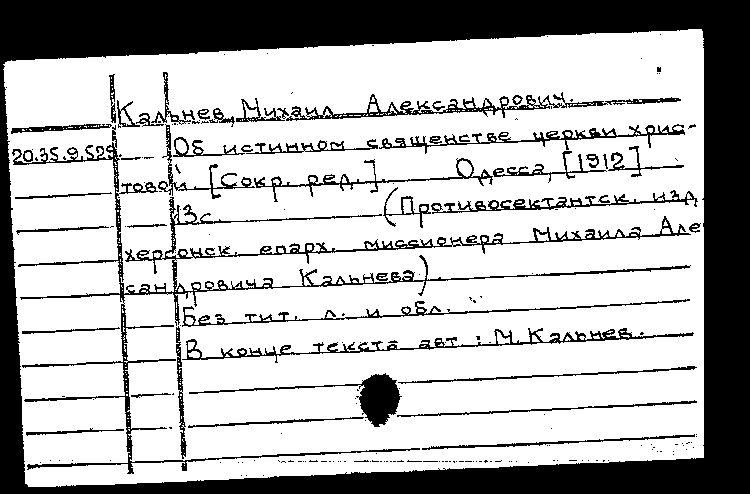 Кальнев, Михаил Александрович.
20.35.9.529. Об истинном священстве церкви хрис-
товой. [Сокр. ред.]. Одесса, [1912]
13с. (Противосектантск. изд.
херсонск. епарх. миссионера Михаила Але
сандровича Кальнева).
Без тит. л. и обл.
В конце текста авт.: М. Кальнев.